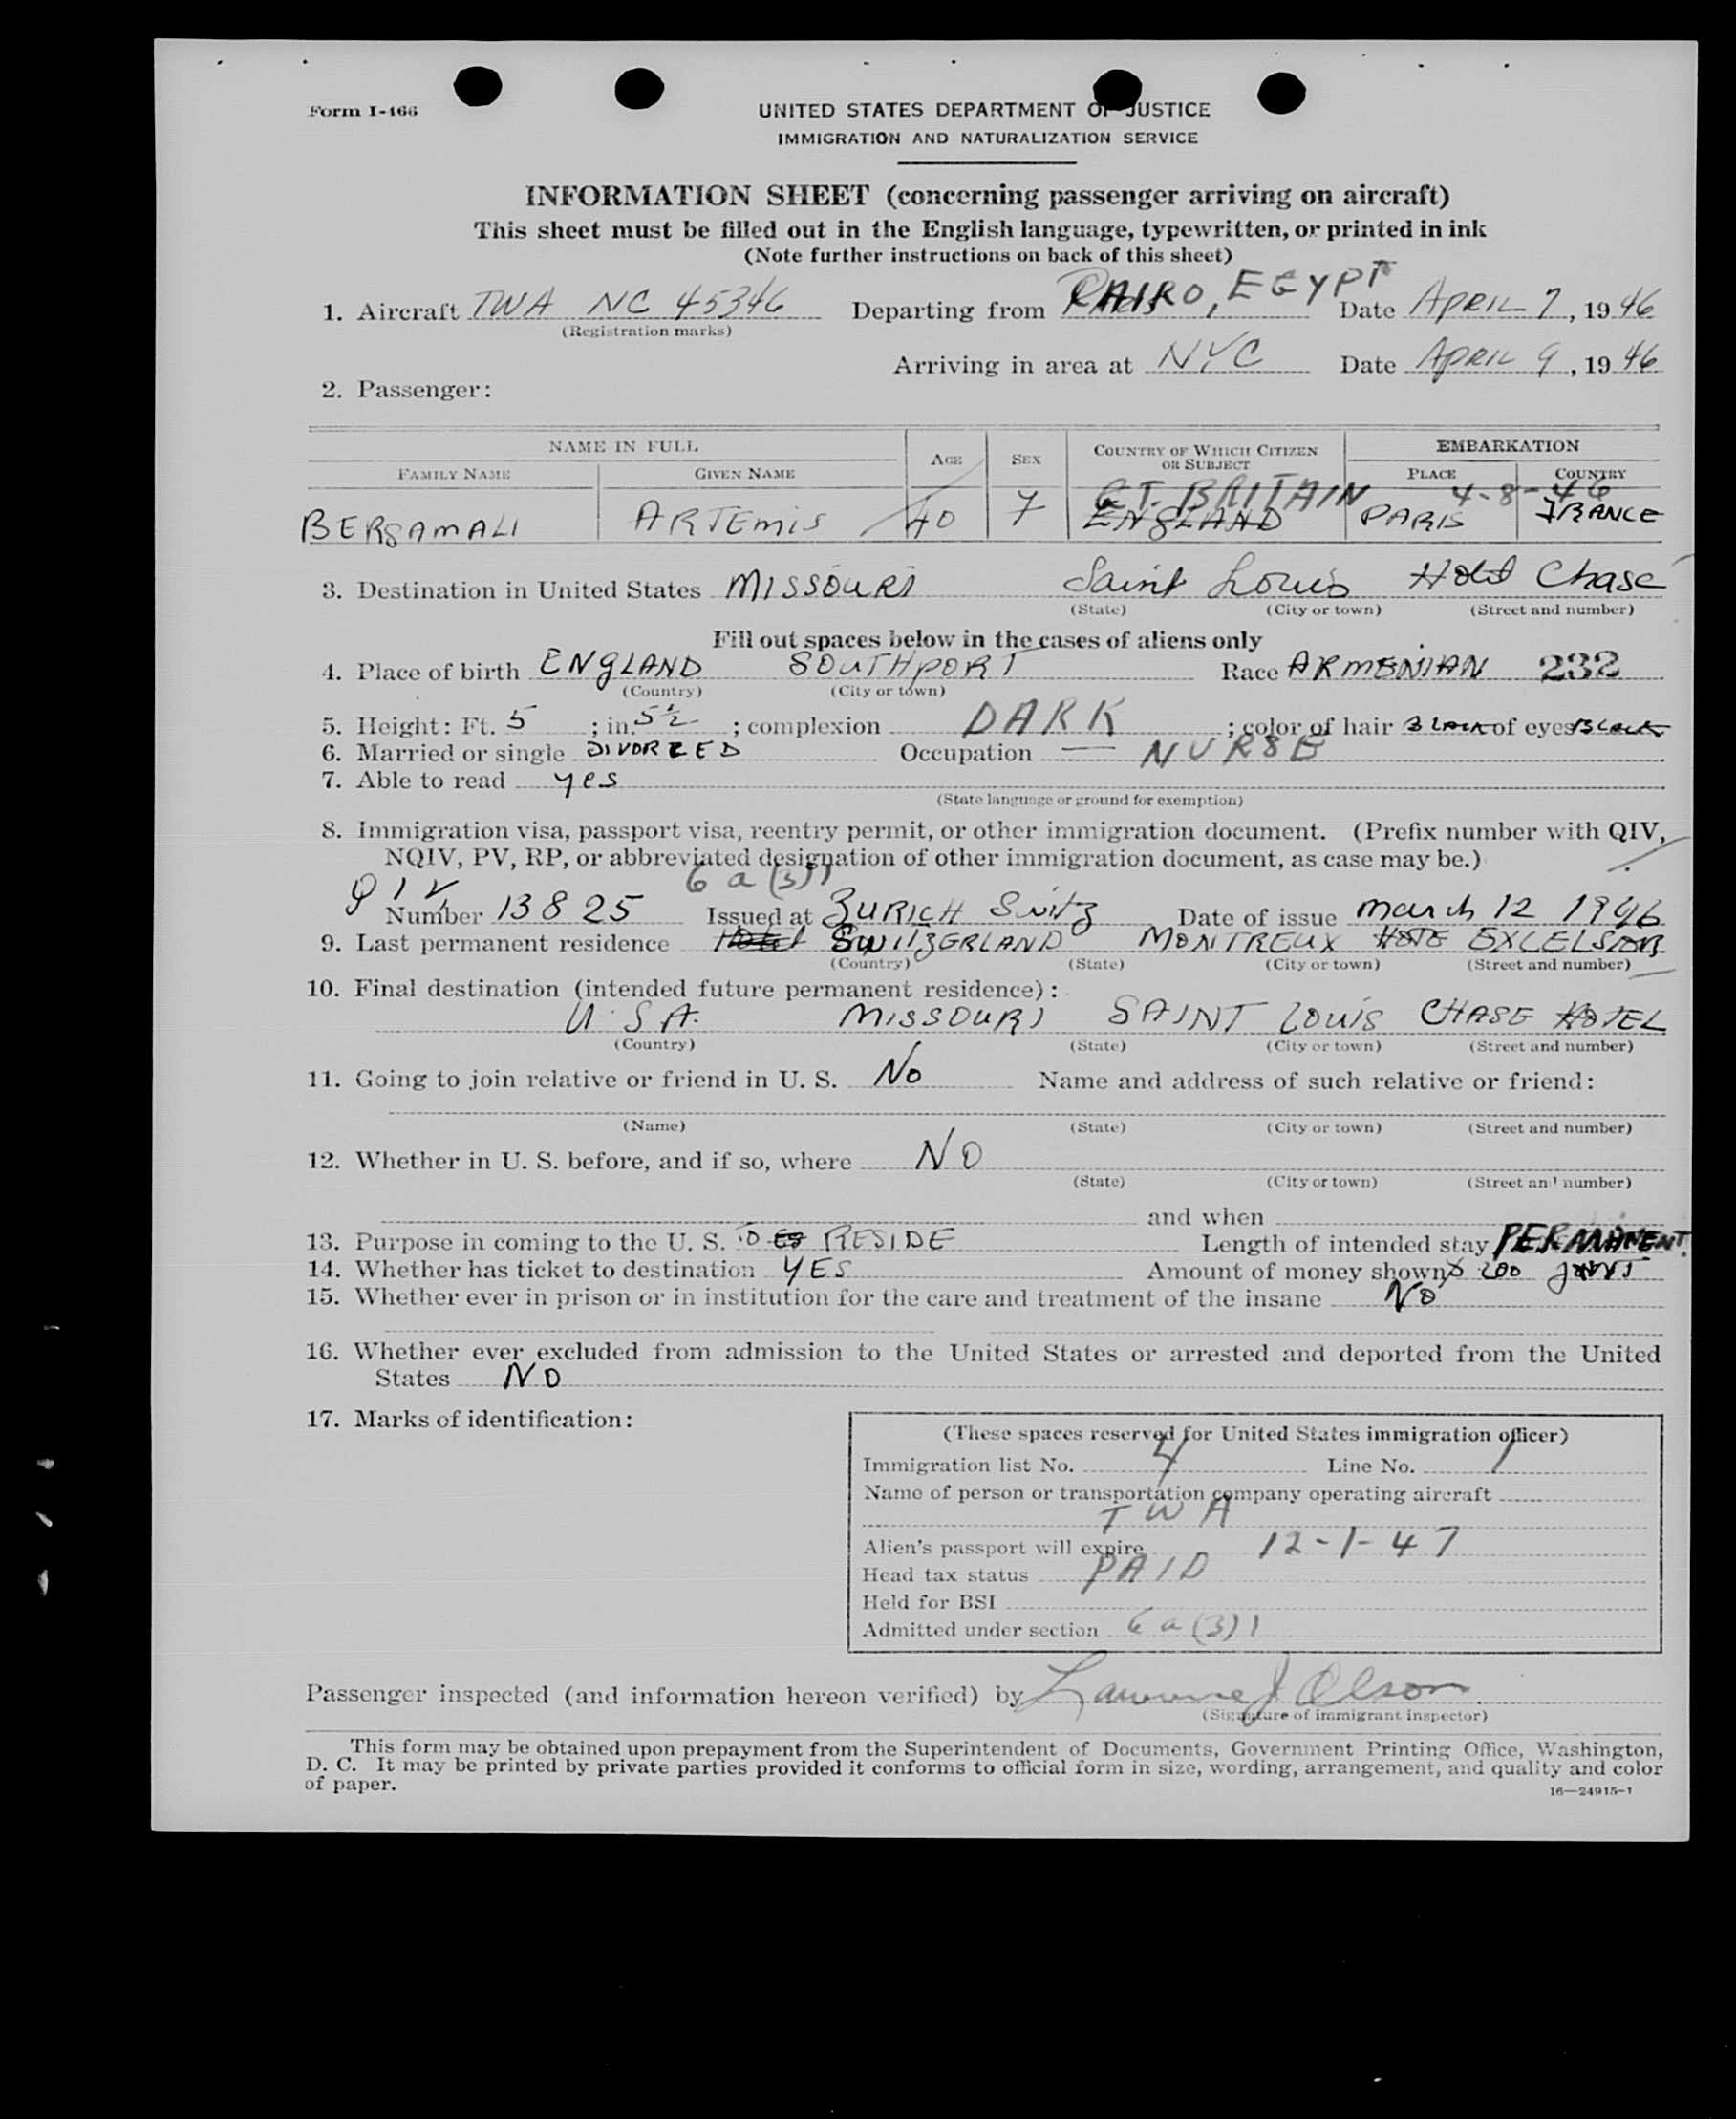 Form I-466
UNITED STATES DEPARTMENT OF JUSTICE
IMMIGRATION AND NATURALIZATION SERVICE
INFORMATION SHEET (concerning passenger arriving on aircraft)
This sheet must be filled out in the English language, typewritten, or printed in ink
(Note further instructions on back of this sheet)
1. Aircraft TWA NC 45346 Departing from CAIRO, EGYPT Date APRIL 7, 1946
(Registration marks)
Arriving in area at NYC Date APRIL 9, 1946
2. Passenger:
NAME IN FULL AGE SEX COUNTRY OF WHICH CITIZEN OR SUBJECT EMBARKATION
FAMILY NAME GIVEN NAME PLACE COUNTRY
GT. BRITAIN 4-8-46
BERGAMALI ARTEMIS 40 F ENGLAND PARIS FRANCE
3. Destination in United States MISSOURI Saint Louis Chase
(State) (City or town) (Street and number)
Fill out spaces below in the cases of aliens only
4. Place of birth ENGLAND SOUTHPORT Race ARMENIAN 232
(Country) (City or town)
5. Height: Ft. 5 ; in. 5½ ; complexion DARK ; color of hair BLACK of eyes BLACK
6. Married or single DIVORCED Occupation — NURSE
7. Able to read yes
(State language or ground for exemption)
8. Immigration visa, passport visa, reentry permit, or other immigration document. (Prefix number with QIV,
NQIV, PV, RP, or abbreviated designation of other immigration document, as case may be.)
6 a (3) 1
QIV Number 13825 Issued at ZURICH Switz Date of issue march 12 1946
9. Last permanent residence SWITZERLAND MONTREUX EXCELSIOR
(Country) (State) (City or town) (Street and number)
10. Final destination (intended future permanent residence):
U.S.A. MISSOURI SAINT LOUIS CHASE HOTEL
(Country) (State) (City or town) (Street and number)
11. Going to join relative or friend in U. S. No Name and address of such relative or friend:
(Name) (State) (City or town) (Street and number)
12. Whether in U. S. before, and if so, where NO
(State) (City or town) (Street and number)
and when
13. Purpose in coming to the U. S. TO RESIDE Length of intended stay PERMANENT
14. Whether has ticket to destination YES Amount of money shown $ 200
15. Whether ever in prison or in institution for the care and treatment of the insane NO
16. Whether ever excluded from admission to the United States or arrested and deported from the United
States NO
17. Marks of identification:
(These spaces reserved for United States immigration officer)
Immigration list No. 4 Line No. 1
Name of person or transportation company operating aircraft
TWA
Alien's passport will expire 12-1-47
Head tax status PAID
Held for BSI
Admitted under section 6 a (3) 1
Passenger inspected (and information hereon verified) by Lawrence J Olson
(Signature of immigrant inspector)
This form may be obtained upon prepayment from the Superintendent of Documents, Government Printing Office, Washington,
D. C. It may be printed by private parties provided it conforms to official form in size, wording, arrangement, and quality and color
of paper.
16—24915-1